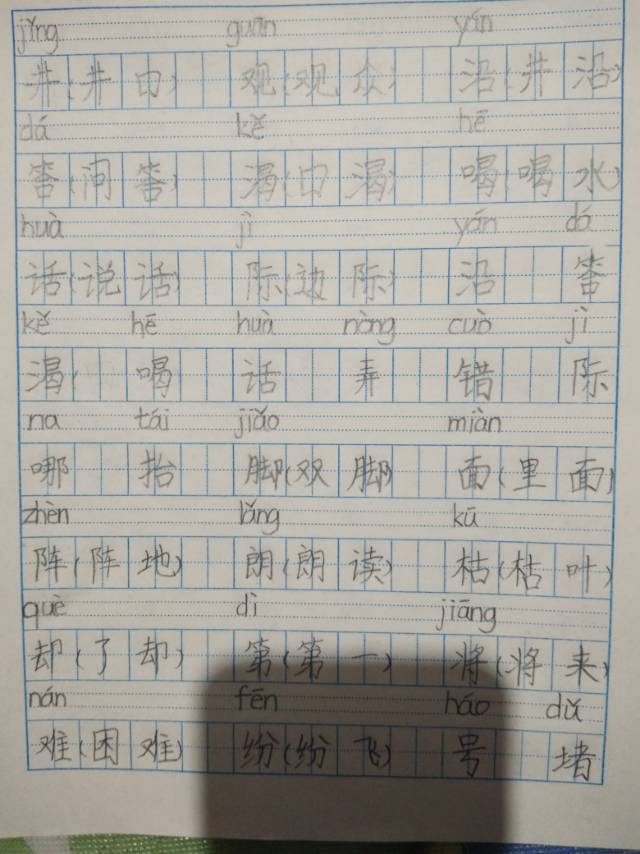 jǐng guān yán
井(井口) 观(观众) 沿(井沿)
dá kě hē
答(问答) 渴(口渴) 喝(喝水)
huà jì yán dá
话(说话) 际(边际) 沿 答
kě hē huà nòng cuò jì
渴( 喝 话 弄 错 际
na tái jiǎo miàn
哪 抬 脚(双脚) 面(里面)
zhèn lǎng kū
阵(阵地) 朗(朗读) 枯(枯叶)
què dì jiāng
却(了却) 第(第一) 将(将来)
nán fēn háo dǔ
难(困难) 纷(纷飞) 号 堵